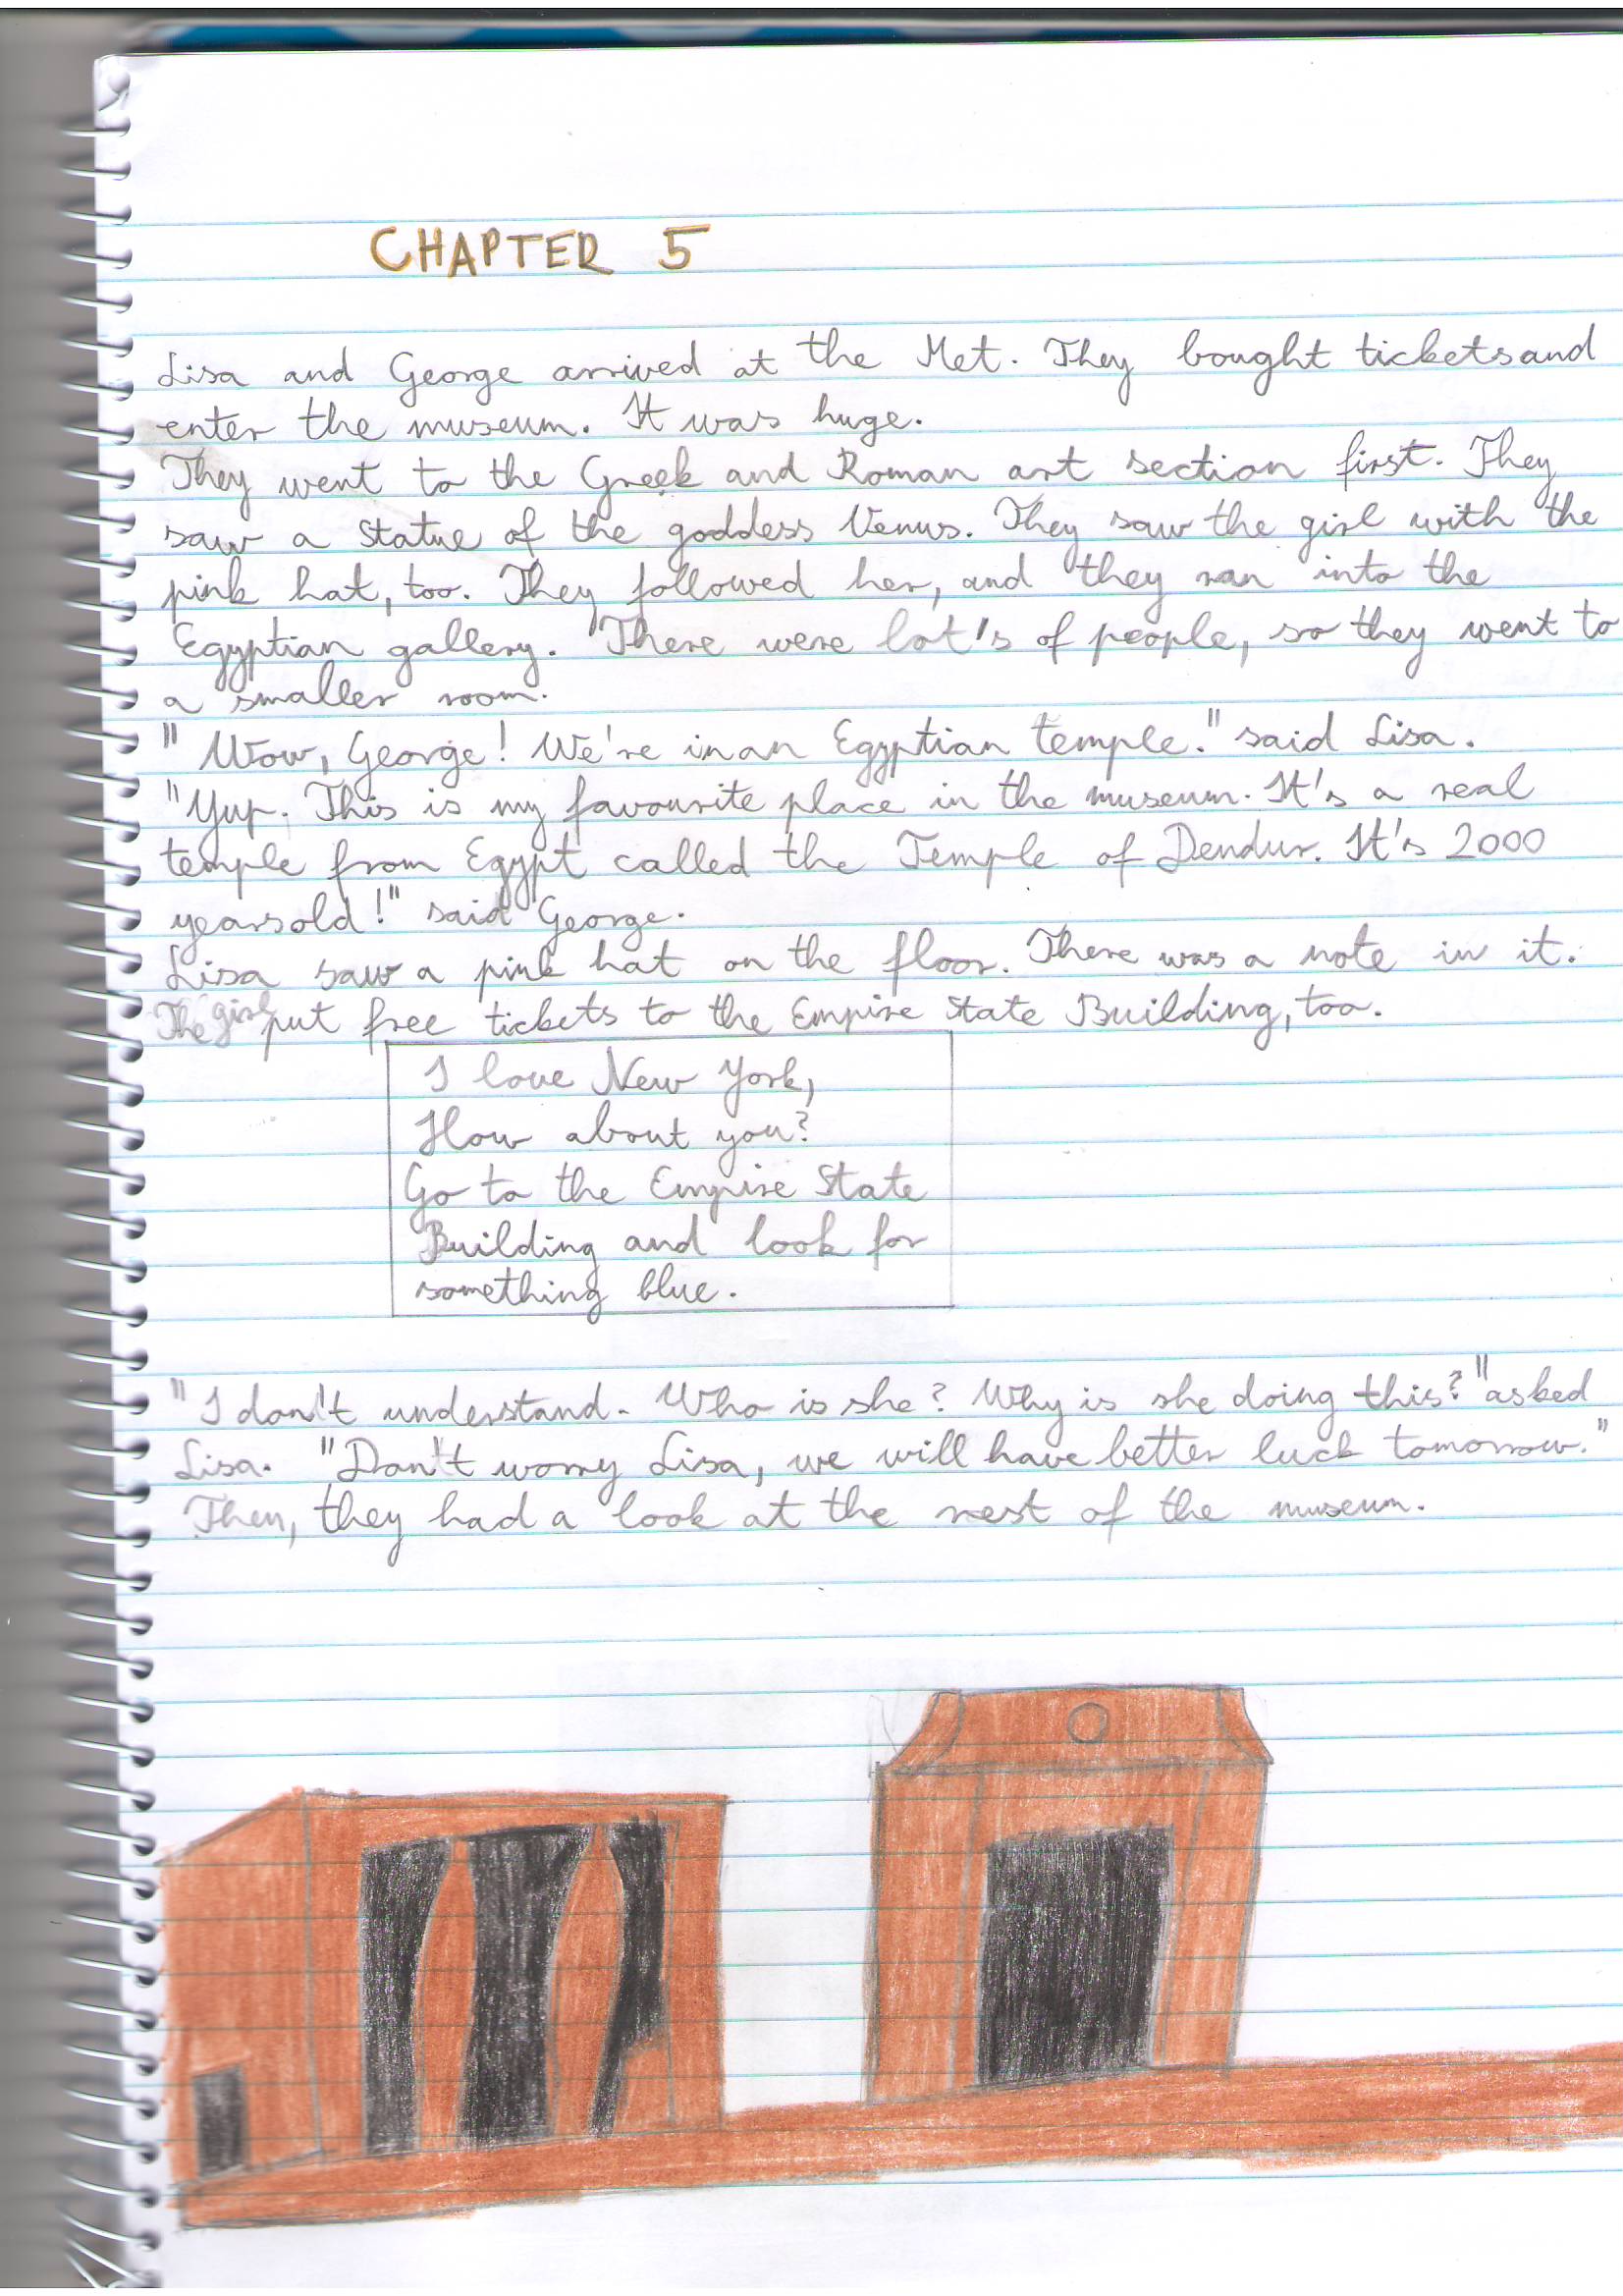 CHAPTER 5
Lisa and George arrived at the Met. They bought tickets and
enter the museum. It was huge.
They went to the Greek and Roman art section first. They
saw a statue of the goddess Venus. They saw the girl with the
pink hat, too. They followed her, and they ran into the
Egyptian gallery. There were lot's of people, so they went to
a smaller room.
" Wow, George! We're in an Egyptian temple." said Lisa.
"Yup. This is my favourite place in the museum. It's a real
temple from Egypt called the Temple of Dendur. It's 2000
years old!" said George.
Lisa saw a pink hat on the floor. There was a note in it.
The girl put free tickets to the Empire State Building, too.
I love New York,
How about you?
Go to the Empire State
Building and look for
something blue.
"I don't understand. Who is she? Why is she doing this?" asked
Lisa. "Don't worry Lisa, we will have better luck tomorrow."
Then, they had a look at the rest of the museum.